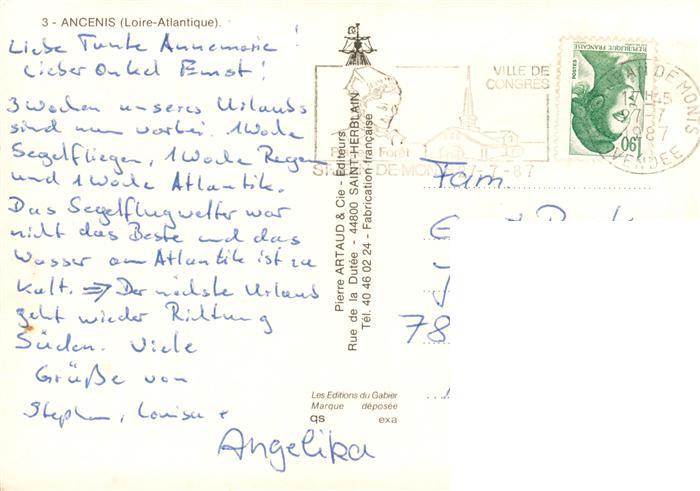 3 - ANCENIS (Loire-Atlantique).
Liebe Tante Annemarie!
Lieber Onkel Ernst!
3 Wochen unseres Urlaubs
sind nun vorbei. 1 Woche
Segelfliegen, 1 Woche Regen
und 1 Woche Atlantik.
Das Segelflugwetter war
nicht das Beste und das
Wasser am Atlantik ist zu
kalt. ⇒ Der nächste Urlaub
geht wieder Richtung
Süden. Viele
Grüße von
Stephan, Louisa +
Angelika
Pierre ARTAUD & Cie - Editeurs
Rue de la Dutée - 44800 SAINT-HERBLAIN
Tél. 40 46 02 24 - Fabrication française
Les Editions du Gabier
Marque déposée
qs exa
VILLE DE
CONGRES
Forêt
DE MONT
7-87
REPUBLIQUE FRANÇAISE
POSTES
1,90
DE MONTS
17H45
27-7
1987
VENDEE
Fam
78